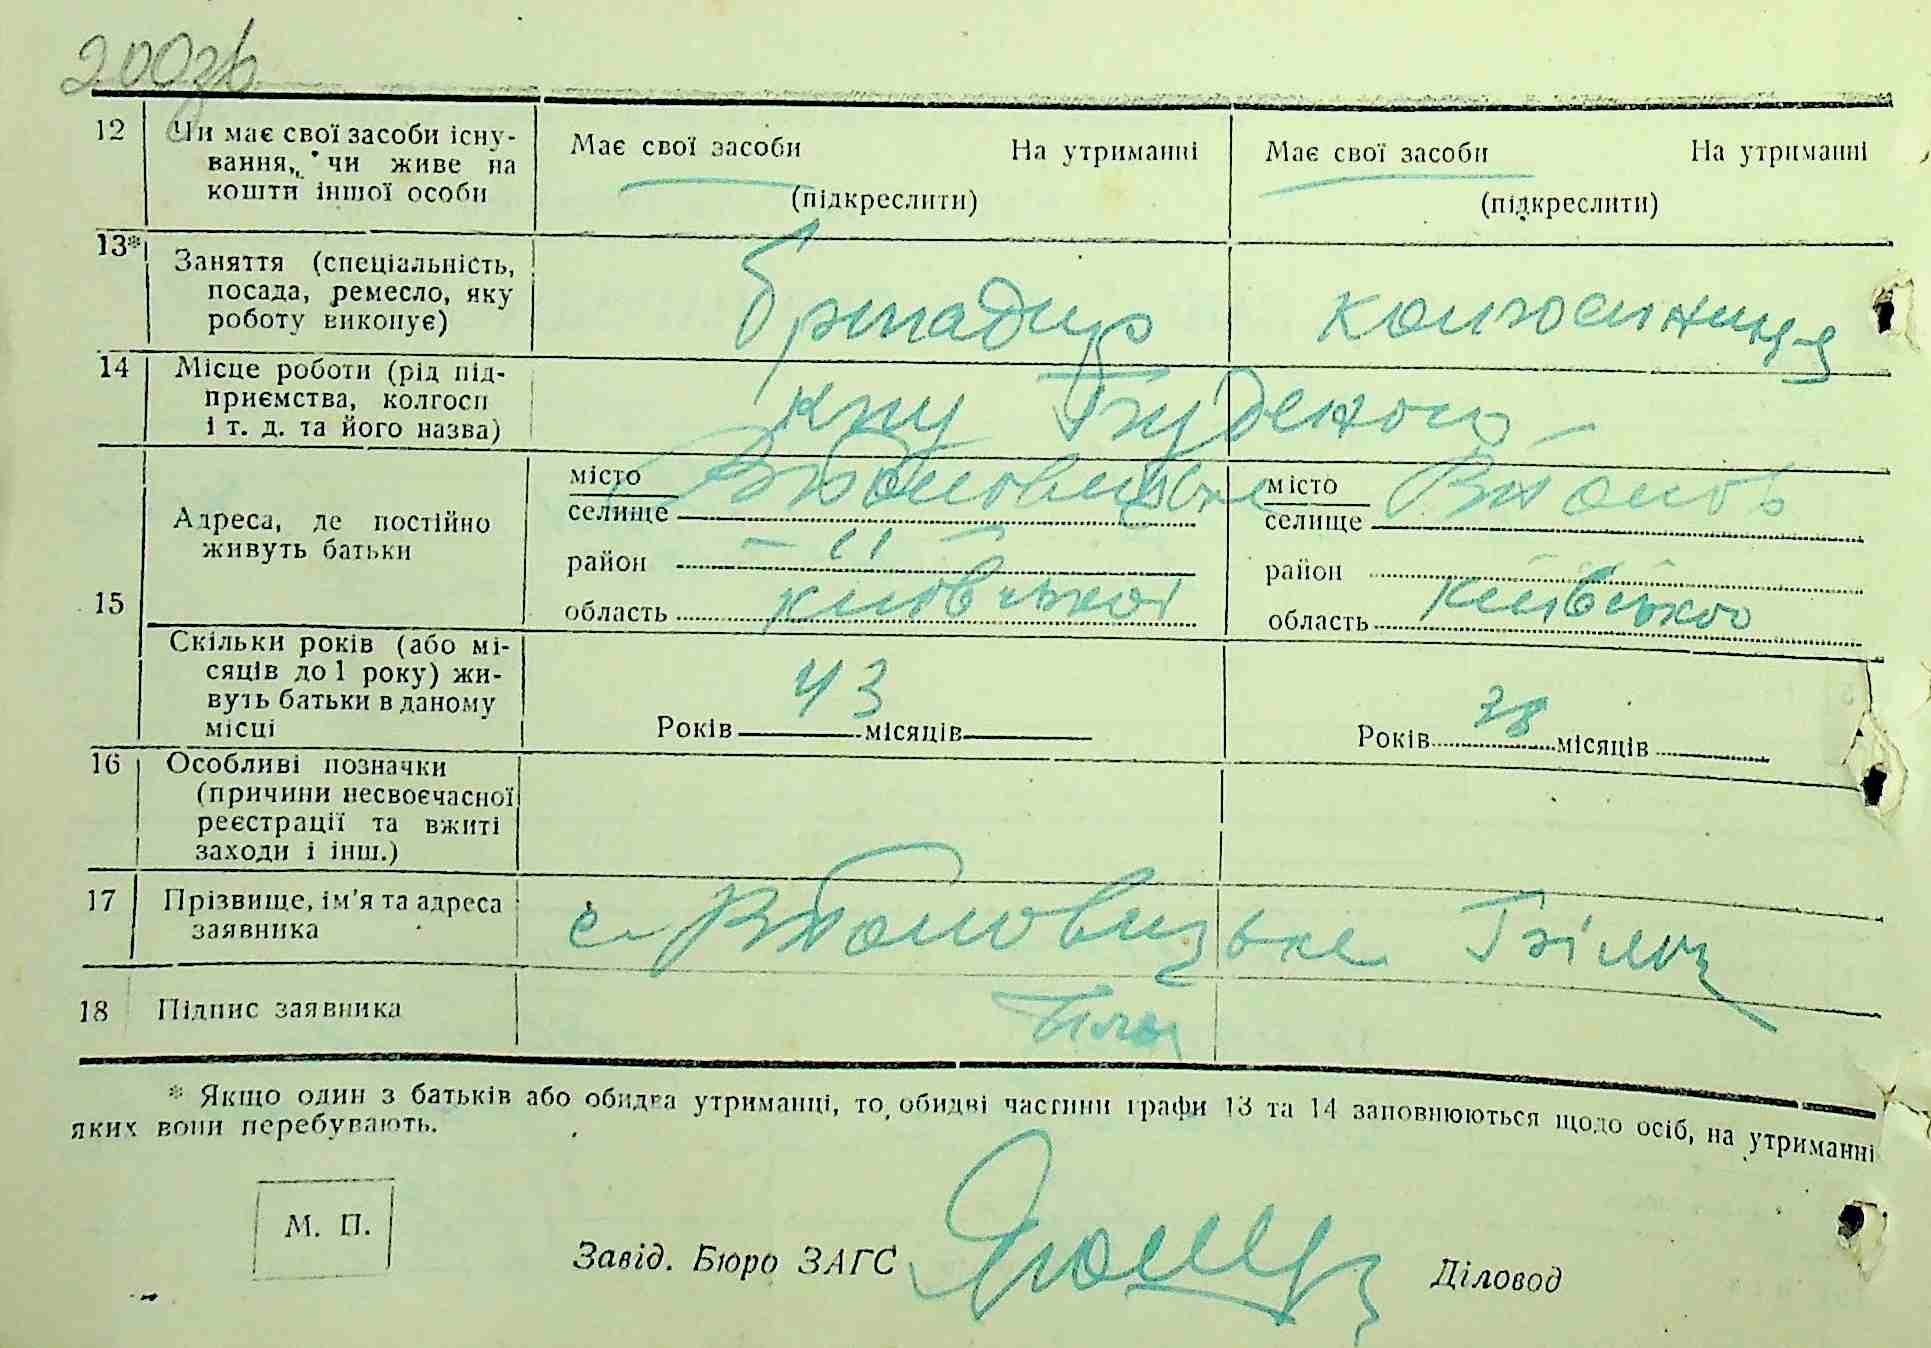 200зв
12 Чи має свої засоби існу- Має свої засоби На утриманні Має свої засоби На утриманні
вання, чи живе на
кошти іншої особи (підкреслити) (підкреслити)
13* Заняття (спеціальність,
посада, ремесло, яку бригадир колгоспниця
роботу виконує)
14 Місце роботи (рід під-
приємства, колгосп
і т. д. та його назва)
місто місто
Адреса, де постійно селище селище
живуть батьки район — " — район
15 область київської область київської
Скільки років (або мі-
сяців до 1 року) жи- 43 28
вуть батьки в даному
місці Років місяців Років місяців
16 Особливі позначки
(причини несвоєчасної
реєстрації та вжиті
заходи і інш.)
17 Прізвище, ім'я та адреса с.
заявника
18 Підпис заявника
* Якщо один з батьків або обидва утриманці, то обидві частини графи 13 та 14 заповнюються щодо осіб, на утриманні
яких вони перебувають.
М. П.
Завід. Бюро ЗАГС Діловод